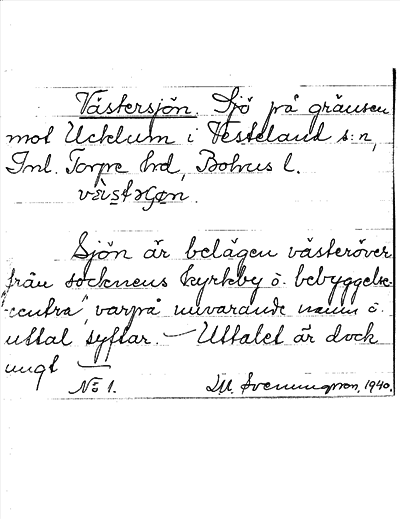 Västersjön. Sjö på gränsen
mot Ucklum i Vesteland s:n,
Inl. Torpe hrd, Bohus l.

Sjön är belägen västeröver
från socknens kyrkby o. bebyggelse-
centra, varpå nuvarande namn o.
uttal syftar. — Uttalet är dock
ungt —
No 1. M. Svenungsson, 1940.